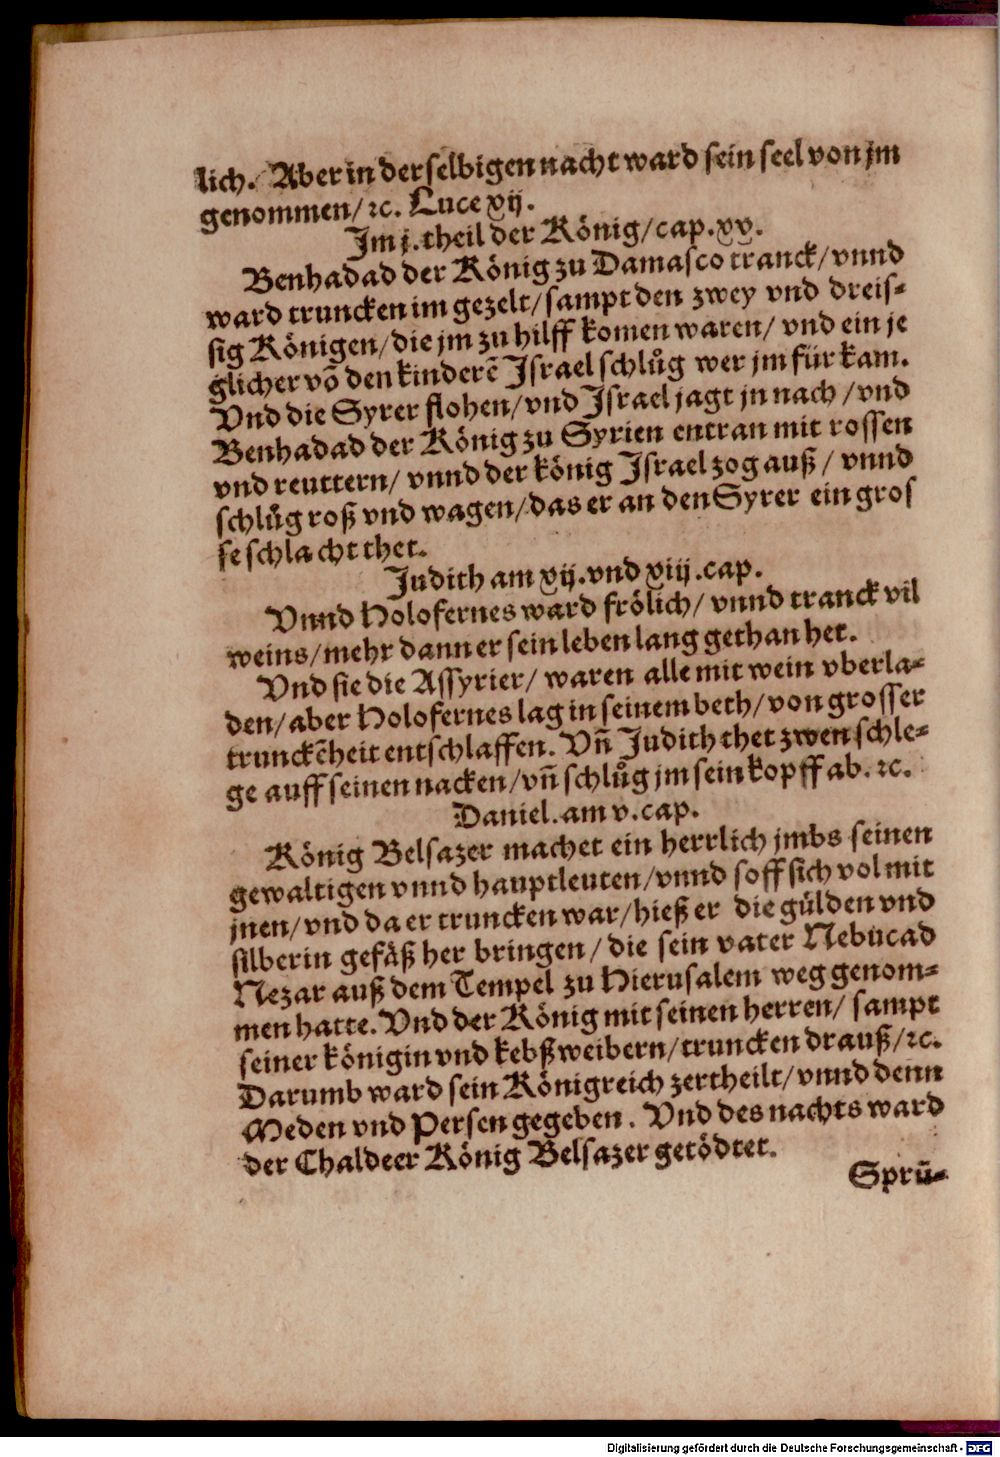 lich. Aber in derselbigen nacht ward sein seel von jm
genommen/ ꝛc. Luce xij.
Im j. theil der König/ cap. xx.
Benhadad der König zu Damasco tranck/ vnnd
ward truncken im gezelt/ sampt den zwey vnd dreis-
sig Königen/ die jm zu hilff komen waren/ vnd ein je
glicher võ den kinderẽ Israel schlůg wer jm für kam.
Vnd die Syrer flohen/ vnd Israel jagt jn nach / vnd
Benhadad der König zu Syrien entran mit rossen
vnd reuttern/ vnnd der könig Israel zog auß / vnnd
schlůg roß vnd wagen/ das er an den Syrer ein gros
se schlacht thet.
Judith am xij. vnd xiij. cap.
Vnnd Holofernes ward frölich/ vnnd tranck vil
weins/ mehr dann er sein leben lang gethan het.
Vnd sie die Assyrier/ waren alle mit wein vberla-
den/ aber Holofernes lag in seinem beth/ von grosser
trunckẽheit entschlaffen. Vñ Judith thet zwen schle-
ge auff seinen nacken/ vñ schlůg jm sein kopff ab. ꝛc.
Daniel. am v. cap.
König Belsazer machet ein herrlich jmbs seinen
gewaltigen vnnd hauptleuten/ vnnd soff sich vol mit
jnen/ vnd da er truncken war/ hieß er die gülden vnd
silberin gefäß her bringen / die sein vater Nebucad
Nezar auß dem Tempel zu Hierusalem weg genom-
men hatte. Vnd der König mit seinen herren/ sampt
seiner königin vnd kebßweibern/ truncken drauß/ ꝛc.
Darumb ward sein Königreich zertheilt/ vnnd denn
Meden vnd Persen gegeben. Vnd des nachts ward
der Chaldeer König Belsazer getödtet.
Sprü-
Digitalisierung gefördert durch die Deutsche Forschungsgemeinschaft - DFG